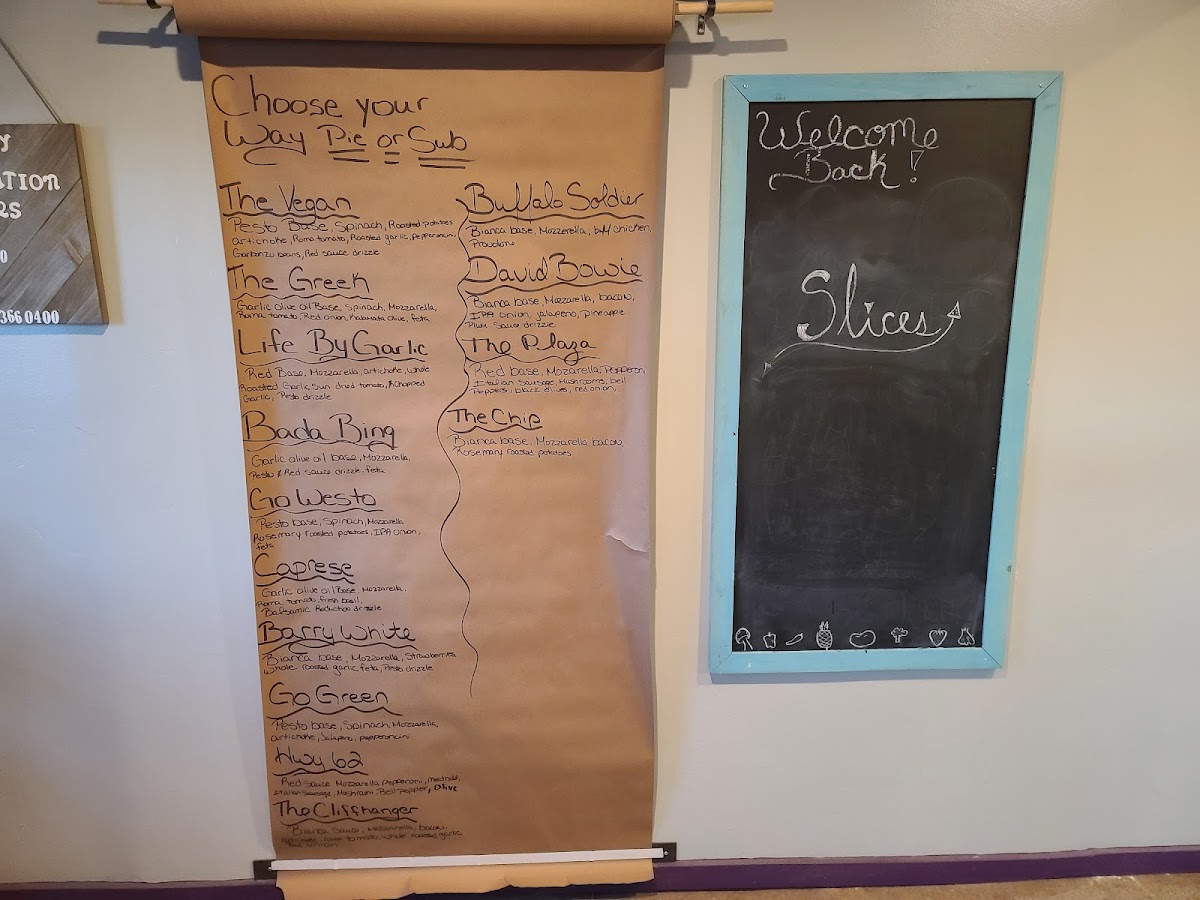 Y
ATION
RS
0
366 0400
Choose your
Way Pie or Sub
The Vegan
Pesto Base, Spinach, Roasted potatoes
artichoke, Roma tomato, Roasted garlic, Pepperoncini,
Garbanzo beans, Red sauce drizzle
The Greek
Garlic olive oil Base, Spinach, Mozzarella,
Roma tomato, Red onion, Kalamata olive, feta
Life By Garlic
Red Base, Mozzarella, artichoke, whole
Roasted Garlic, Sun dried tomato, & Chopped
Garlic, Pesto drizzle
Bada Bing
Garlic olive oil base, Mozzarella,
Pesto & Red sauce drizzle, feta
Go Westo
Pesto base, Spinach, Mozzarella
Rosemary roasted potatoes, IPA onion,
feta
Caprese
Garlic olive oil Base, Mozzarella,
Roma tomato, fresh basil,
Balsamic Reduction drizzle
Barry White
Bianca base, Mozzarella, Strawberries
Whole roasted garlic, feta, Pesto drizzle
Go Green
Pesto base, Spinach, Mozzarella,
artichoke, Jalapeno, pepperoncini
Hwy 62
Red sauce Mozzarella Pepperoni, Meatball,
Italian Sausage, Mushroom, Bell Pepper, Olive
The Cliffhanger
Bianca Sauce, Mozzarella, bacon,
roma tomato, whole roasted garlic
Red onion
Buffalo Soldier
Bianca base, Mozzerella, buff chicken,
David Bowie
Bianca base, Mozzarella, bacon,
IPA onion, jalapeno, pineapple
Plum Sauce drizzle
The Plaza
Red base, Mozarella, Pepperoni
Italian Sausage, Mushrooms, bell
Peppers, black olives, red onion,
The Chip
Bianca base, Mozzarella, bacon,
Rosemary roasted potatoes
Welcome
Back!
Slices